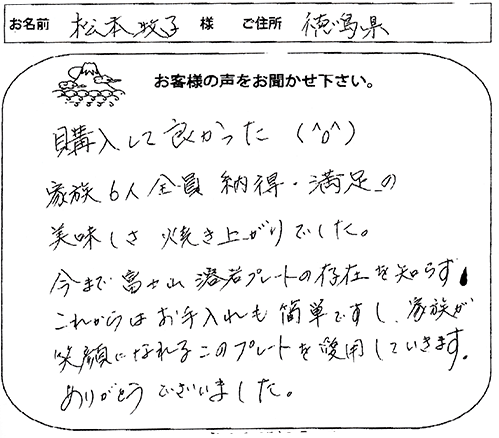 お名前 松本牧子 様 ご住所 徳島県
お客様の声をお聞かせ下さい。
購入して良かった (^o^)
家族6人全員 納得・満足の
美味しさ 焼き上がりでした。
今まで富士山溶岩プレートの存在を知らず
これからはお手入れも簡単ですし、家族が
笑顔になれるこのプレートを愛用していきます。
ありがとうございました。